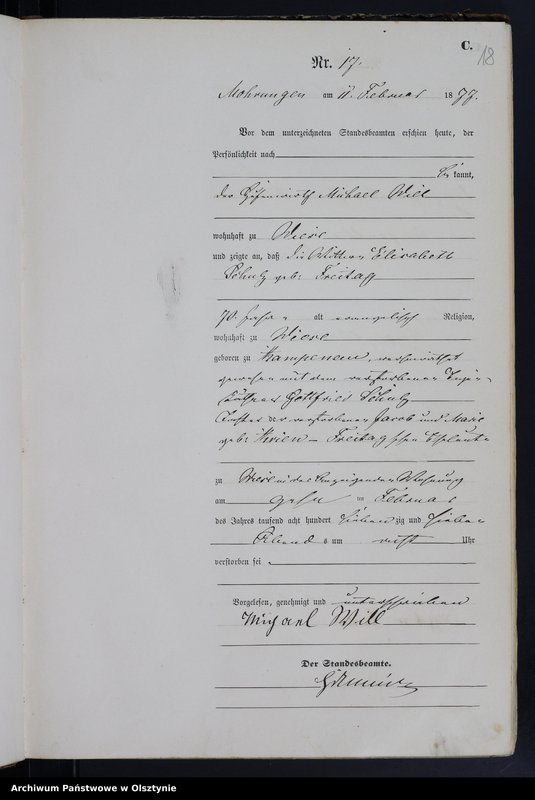 C.
18
Nr. 17.
Mohrungen am 11. Februar 1877.
Vor dem unterzeichneten Standesbeamten erschien heute, der
Persönlichkeit nach
be kannt,
der Michael Will
wohnhaft zu Wiese
und zeigte an, daß die Wittwe Elisabeth
Schulz geb. Freitag
70 Jahre alt evangelisch Religion,
wohnhaft zu Wiese
geboren zu verheirathet
gewesen mit dem verstorbenen
Gottfried Schulz
Tochter der verstorbenen Jacob und Marie
geb. Freitag'schen Eheleute
zu Wiese in des Anzeigenden Wohnung
am zehn ten Februar
des Jahres tausend acht hundert sieben zig und sieben
Abend s um acht Uhr
verstorben sei
Vorgelesen, genehmigt und unterschrieben
Michael Will
Der Standesbeamte.
Archiwum Państwowe w Olsztynie